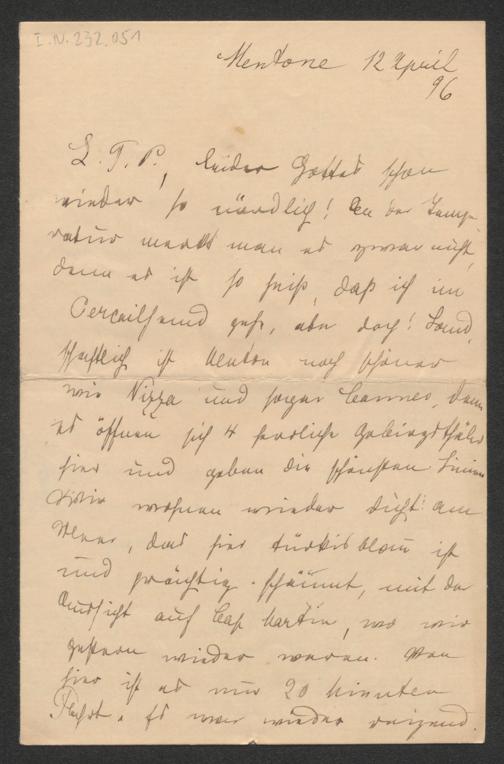 I.N. 232.051
Mentone 12 April
96
L. T. P., leider Gottes schon
wieder so nördlich! An der Tempe-
ratur merkt man es zwar nicht,
denn es ist so heiß, daß ich im
Percailhemd gehe, aber doch! Land-
schaftlich ist Menton noch schöner
wie Nizza und sogar Cannes, denn
es öffnen sich 4 herrliche Gebirgsthäler
hier und geben die schönsten Linien
Wir wohnen wieder dicht am
Meer, das hier türkisblau ist
und prächtig schäumt, mit der
Aussicht auf Cap Martin, wo wir
gestern wieder waren. Von
hier ist es nur 20 Minuten
Fahrt. Es war wieder reizend.